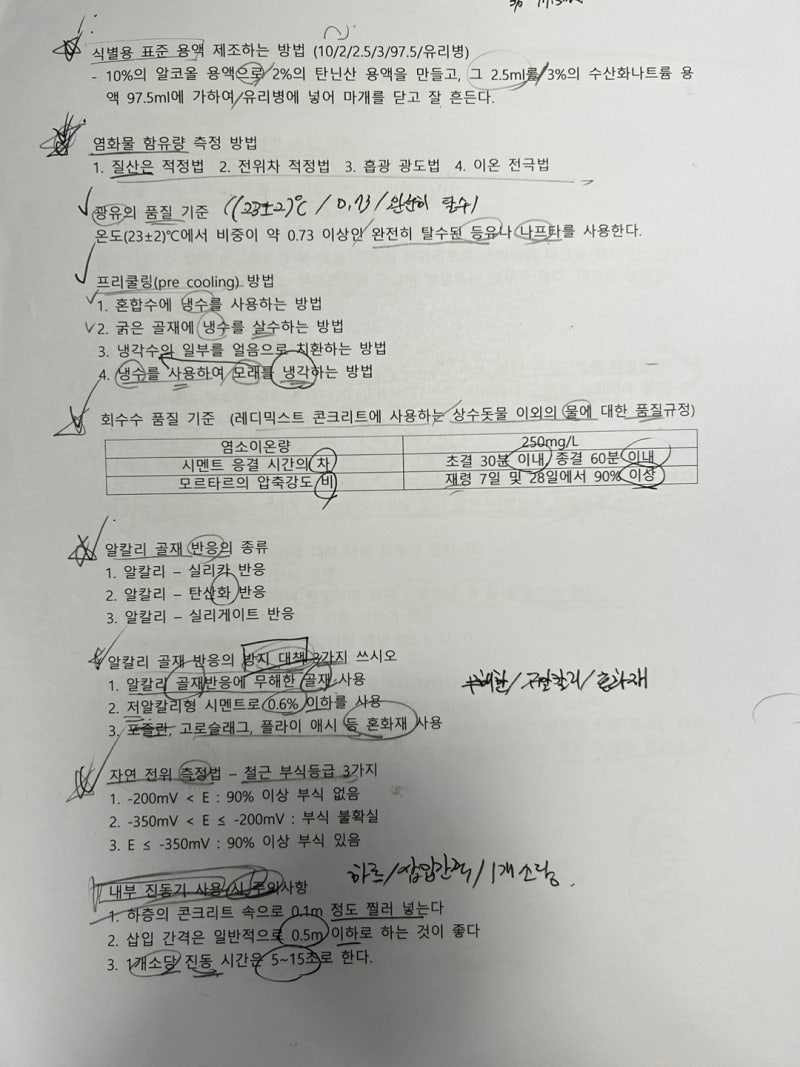 식별용 표준 용액 제조하는 방법 (10/2/2.5/3/97.5/유리병)
- 10%의 알코올 용액으로 2%의 탄닌산 용액을 만들고, 그 2.5ml를 3%의 수산화나트륨 용
액 97.5ml에 가하여 유리병에 넣어 마개를 닫고 잘 흔든다.
염화물 함유량 측정 방법
1. 질산은 적정법 2. 전위차 적정법 3. 흡광 광도법 4. 이온 전극법
광유의 품질 기준 ((23±2)℃ / 0.73 / 완전히 탈수)
온도(23±2)℃에서 비중이 약 0.73 이상인 완전히 탈수된 등유나 나프타를 사용한다.
프리쿨링(pre cooling) 방법
1. 혼합수에 냉수를 사용하는 방법
2. 굵은 골재에 냉수를 살수하는 방법
3. 냉각수의 일부를 얼음으로 치환하는 방법
4. 냉수를 사용하여 모래를 냉각하는 방법
회수수 품질 기준 (레디믹스트 콘크리트에 사용하는 상수돗물 이외의 물에 대한 품질규정)
염소이온량 250mg/L
시멘트 응결 시간의 차 초결 30분 이내 종결 60분 이내
모르타르의 압축강도 비 재령 7일 및 28일에서 90% 이상
알칼리 골재 반응의 종류
1. 알칼리 – 실리카 반응
2. 알칼리 – 탄산화 반응
3. 알칼리 – 실리게이트 반응
알칼리 골재 반응의 방지 대책 3가지 쓰시오
1. 알칼리 골재반응에 무해한 골재 사용 무해한/ 저알칼리/ 혼화재
2. 저알칼리형 시멘트로 0.6% 이하를 사용
3. 포졸란, 고로슬래그, 플라이 애시 등 혼화재 사용
자연 전위 측정법 – 철근 부식등급 3가지
1. -200mV < E : 90% 이상 부식 없음
2. -350mV < E ≤ -200mV : 부식 불확실
3. E ≤ -350mV : 90% 이상 부식 있음
하층/삽입간격/1개소당.
내부 진동기 사용 시 주의사항
1. 하층의 콘크리트 속으로 0.1m 정도 찔러 넣는다
2. 삽입 간격은 일반적으로 0.5m 이하로 하는 것이 좋다
3. 1개소당 진동 시간은 5~15초로 한다.